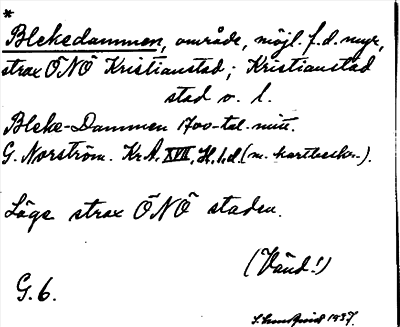 *
Blekedammen, område, möjl. f.d. myr,
strax ÖNÖ Kristianstad; Kristianstad
stad o. l.
Bleke-Dammen 1700-tal. mitt.
G. Norström. Kr.A. XVII, H.l.d. (m. kartbeskr.).
Läge strax ÖNÖ staden.
(Vänd!)
G. 6.
1937.